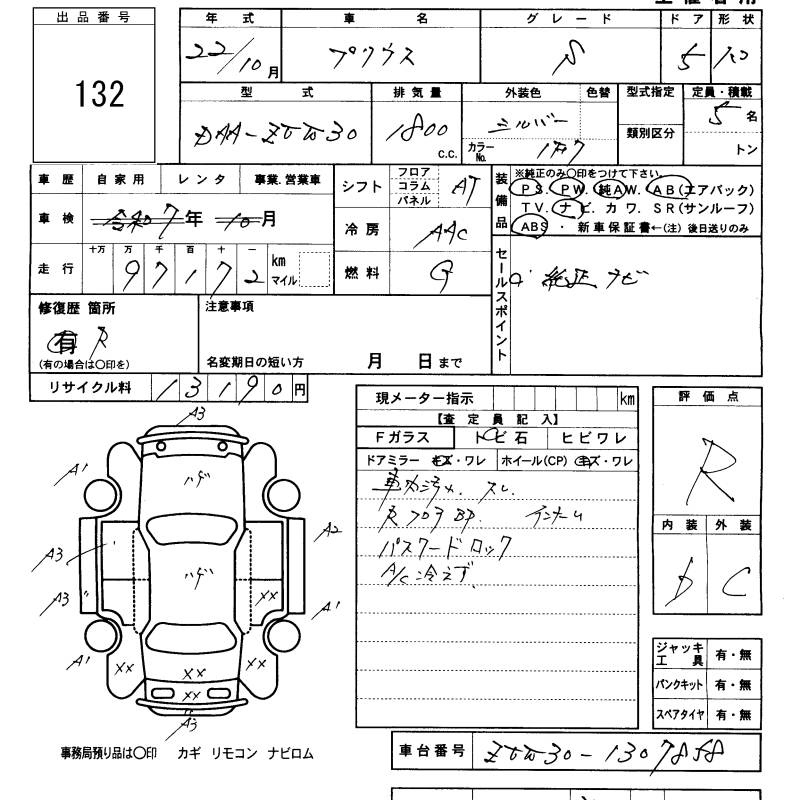 出品番号
132
年式 車名 グレード ドア 形状
22/10月 プリウス S 5
型式 排気量 外装色 色替 型式指定 定員・積載
DAA-ZVW30 1800 c.c. シルバー 類別区分 5名
カラーNo. 1F7 トン
車歴 自家用 レンタ 事業.営業車 シフト フロア コラム パネル AT
車検 令和7年 10月 冷房 AAC
走行 十万 万 千 百 十 一 97172 km マイル 燃料 G
装備品 ※純正のみ〇印をつけて下さい。
PS. PW. 純AW. AB(エアバック)
TV. ナビ. カワ. SR(サンルーフ)
ABS ・ 新車保証書←(注) 後日送りのみ
セールスポイント 純正ナビ
修復歴 箇所 注意事項
有 R
(有の場合は〇印を) 名変期日の短い方 月 日まで
リサイクル料 13190円
現メーター指示 km
【査定員記入】
Fガラス トビ石 ヒビワレ
ドアミラー キズ・ワレ ホイール(CP) キズ・ワレ
車内汚れ. スレ.
Rフロア BP. インナーム
パスワードロック
A/C冷えず
評価点
R
内装 外装
D C
ジャッキ工具 有・無
パンクキット 有・無
スペアタイヤ 有・無
A3
A1 ハゲ
A2
A3 ハゲ
A3 XX A1
A1 XX XX XX
XX
A3
事務局預り品は〇印 カギ リモコン ナビロム
車台番号 ZVW30-1307858